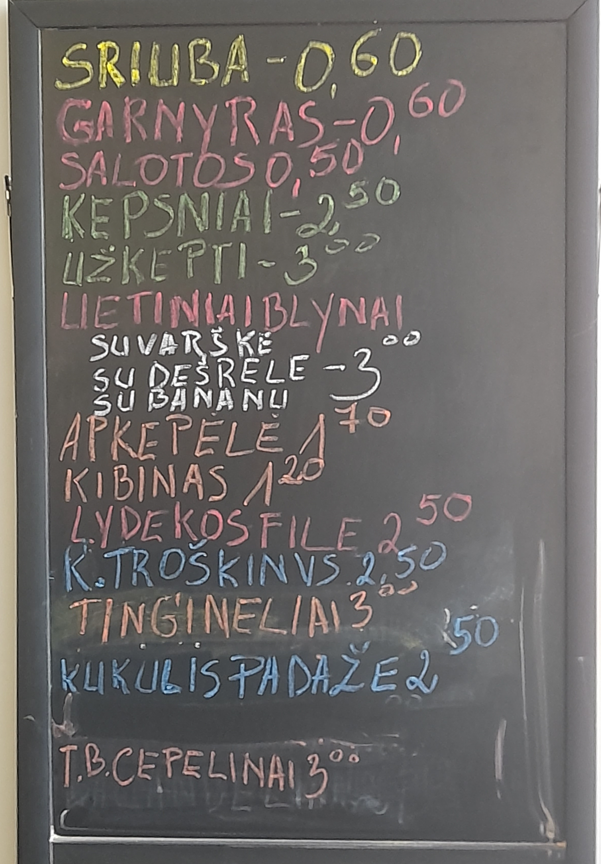 SRIUBA - 0,60
GARNYRAS - 0,60
SALOTOS 0,50
KEPSNIAI - 2,50
UŽKEPTI - 3 00
LIETINIAI BLYNAI
SU VARŠKE
SU DEŠRELE - 3 00
SU BANANU
APKEPĖLĖ 1 70
KIBINAS 1 20
LYDEKOS FILE 2 50
K. TROŠKINYS 2,50
TINGINELIAI 3 00
KUKULIS PADAŽE 2 50
T.B. CEPELINAI 3 00